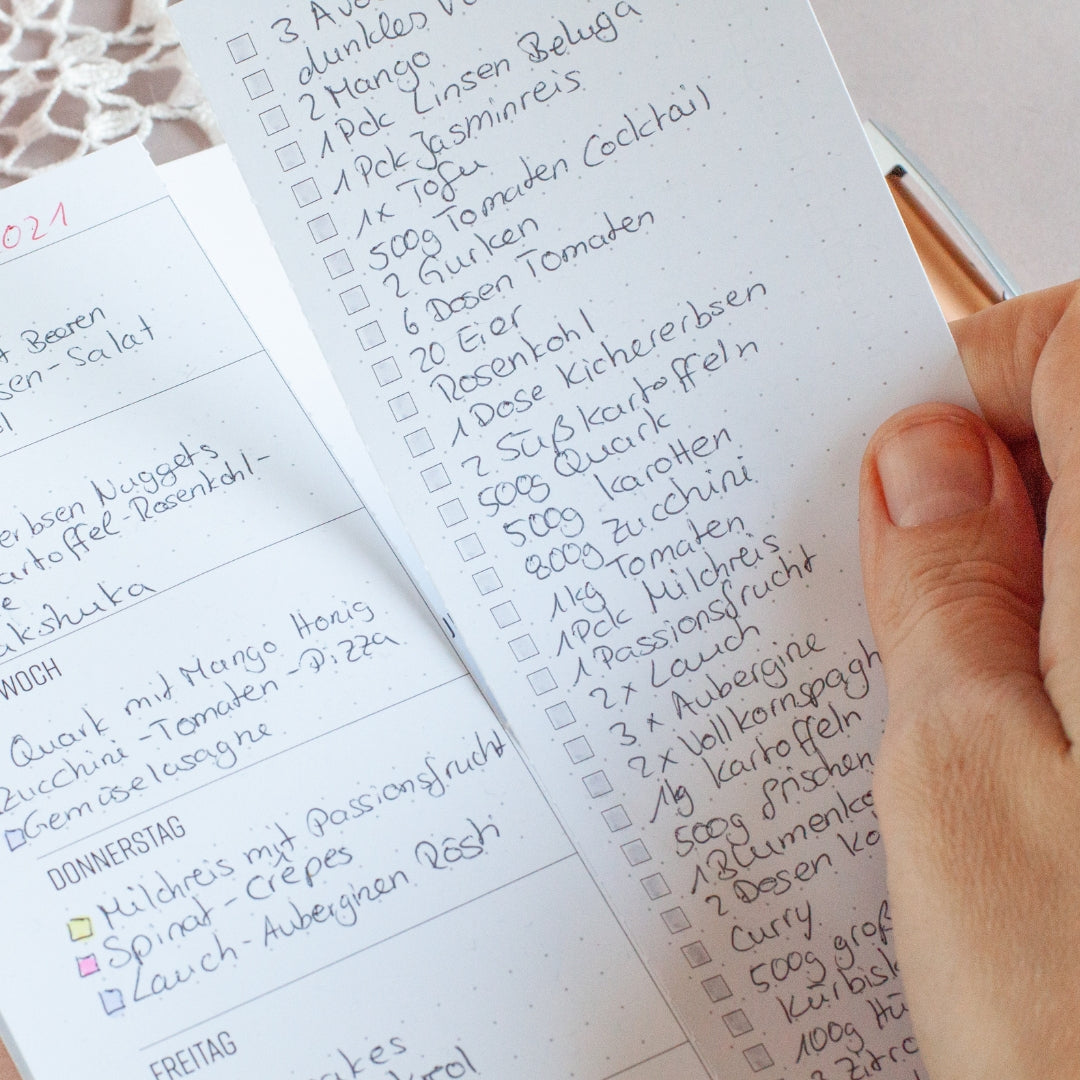 021
Beeren
-Salat
Nuggets
-Rosenkohl-
WOCH
Quark mit Mango Honig
Zucchini-Tomaten-Pizza
Gemüselasagne
DONNERSTAG
Milchreis mit Passionsfrucht
Spinat-Crêpes
Lauch-Auberginen Rösti
FREITAG
3
dunkles
2 Mango
1 Pck Linsen Beluga
1 Pck Jasminreis
1x Tofu
500g Tomaten Cocktail
2 Gurken
6 Dosen Tomaten
20 Eier
Rosenkohl
1 Dose Kichererbsen
2 Süßkartoffeln
500g Quark
500g Karotten
800g Zucchini
1kg Tomaten
1 Pck Milchreis
1 Passionsfrucht
2x Lauch
3x Aubergine
2x Vollkornspagh
1kg Kartoffeln
500g frischen
1 Blumenko
2 Dosen Ko
Curry
500g groß
Kürbisk
100g Hü
Zitro